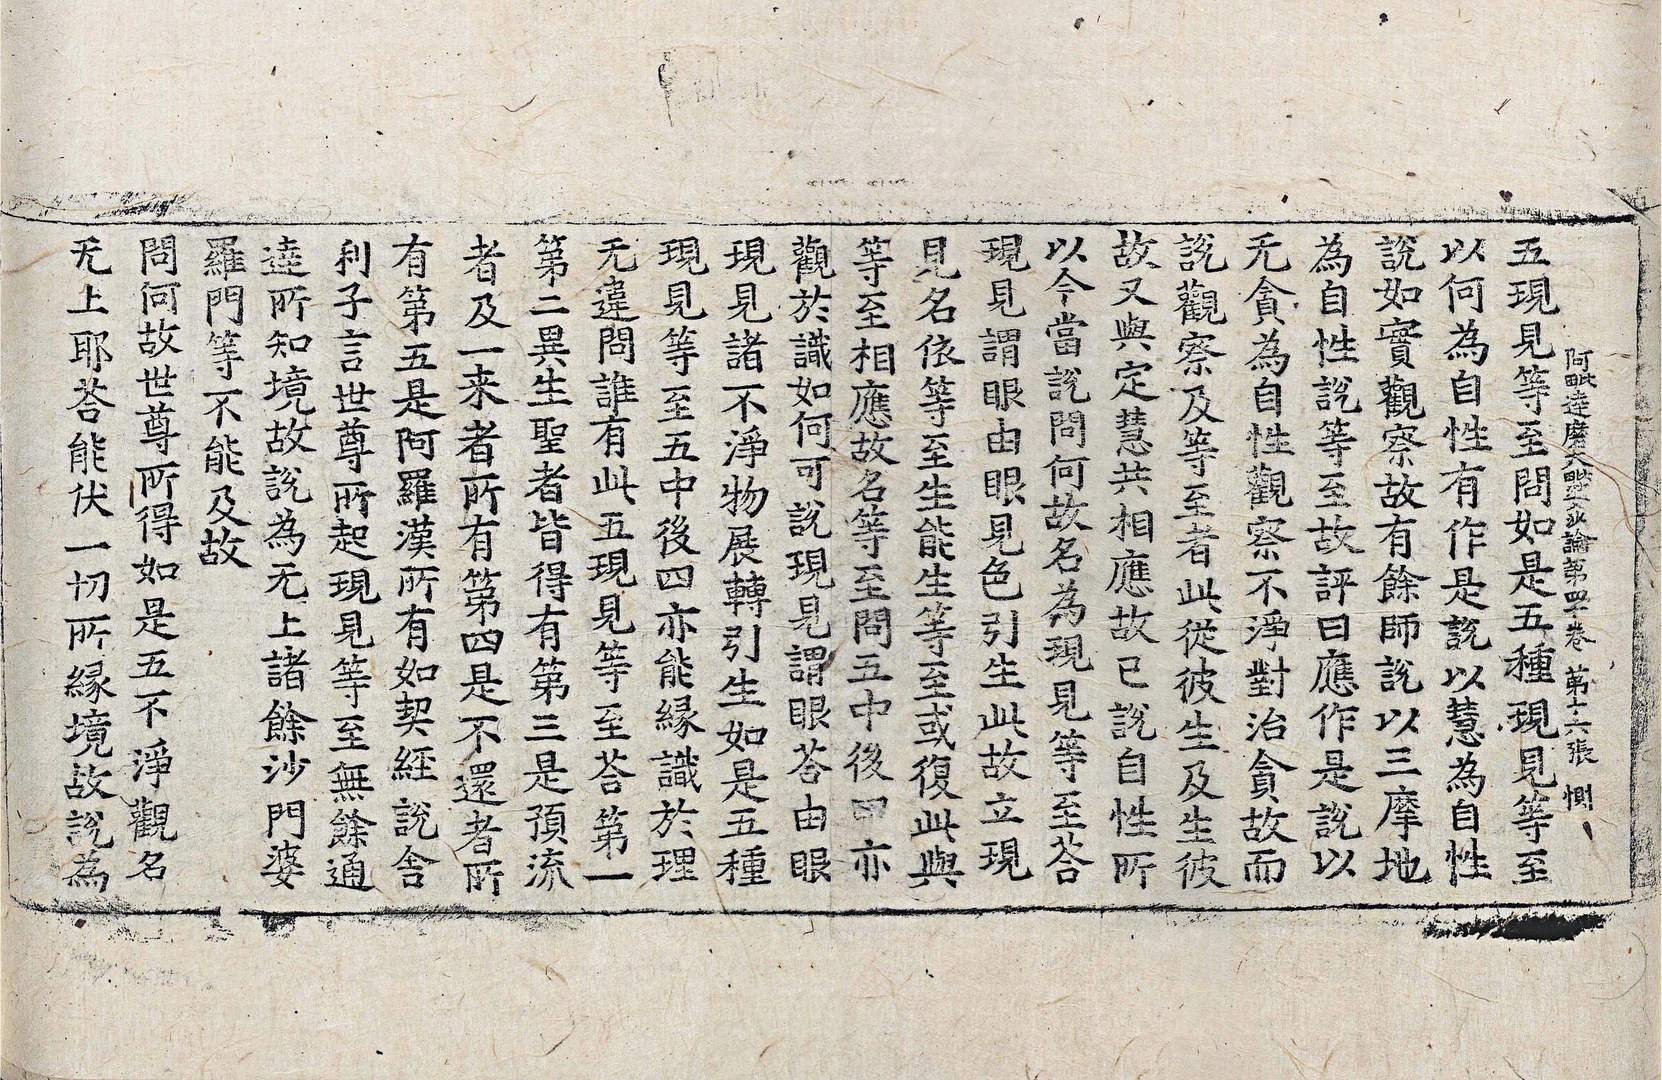 阿毗達磨大毗婆沙論第四十卷　第十六張　惻
五現見等至問如是五種現見等至
以何為自性有作是說以慧為自性
說如實觀察故有餘師說以三摩地
為自性說等至故評曰應作是說以
无貪為自性觀察不淨對治貪故而
說觀察及等至者此從彼生及生彼
故又與定慧共相應故已說自性所
以今當說問何故名為現見等至荅
現見謂眼由眼見色引生此故立現
見名依等至生能生等至或復此與
等至相應故名等至問五中後四亦
觀於識如何可說現見謂眼荅由眼
現見諸不淨物展轉引生如是五種
現見等至五中後四亦能緣識於理
无違問誰有此五現見等至荅第一
第二異生聖者皆得有第三是預流
者及一来者所有第四是不還者所
有第五是阿羅漢所有如契經說舍
利子言世尊所起現見等至無餘通
達所知境故說為无上諸餘沙門婆
羅門等不能及故
問何故世尊所得如是五不淨觀名
无上耶荅能伏一切所緣境故說為